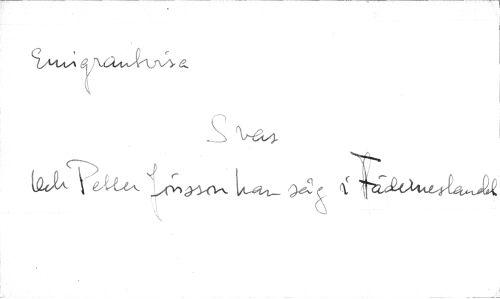 Emigrantvisa
Svar
Och Petter Jönsson han såg i Fäderneslandet